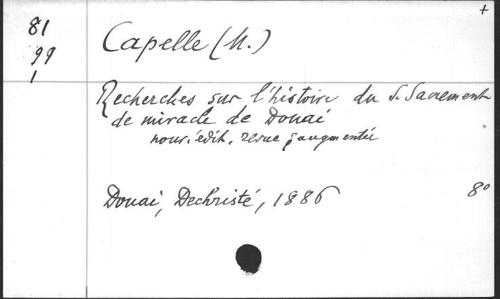 +
81
99
1
Capelle (M.)
Recherches sur l'histoire du S. Sacrement
de miracle de Douai
nouv. édit. revue & augmentée
Douai, Dechristé, 1886 8°